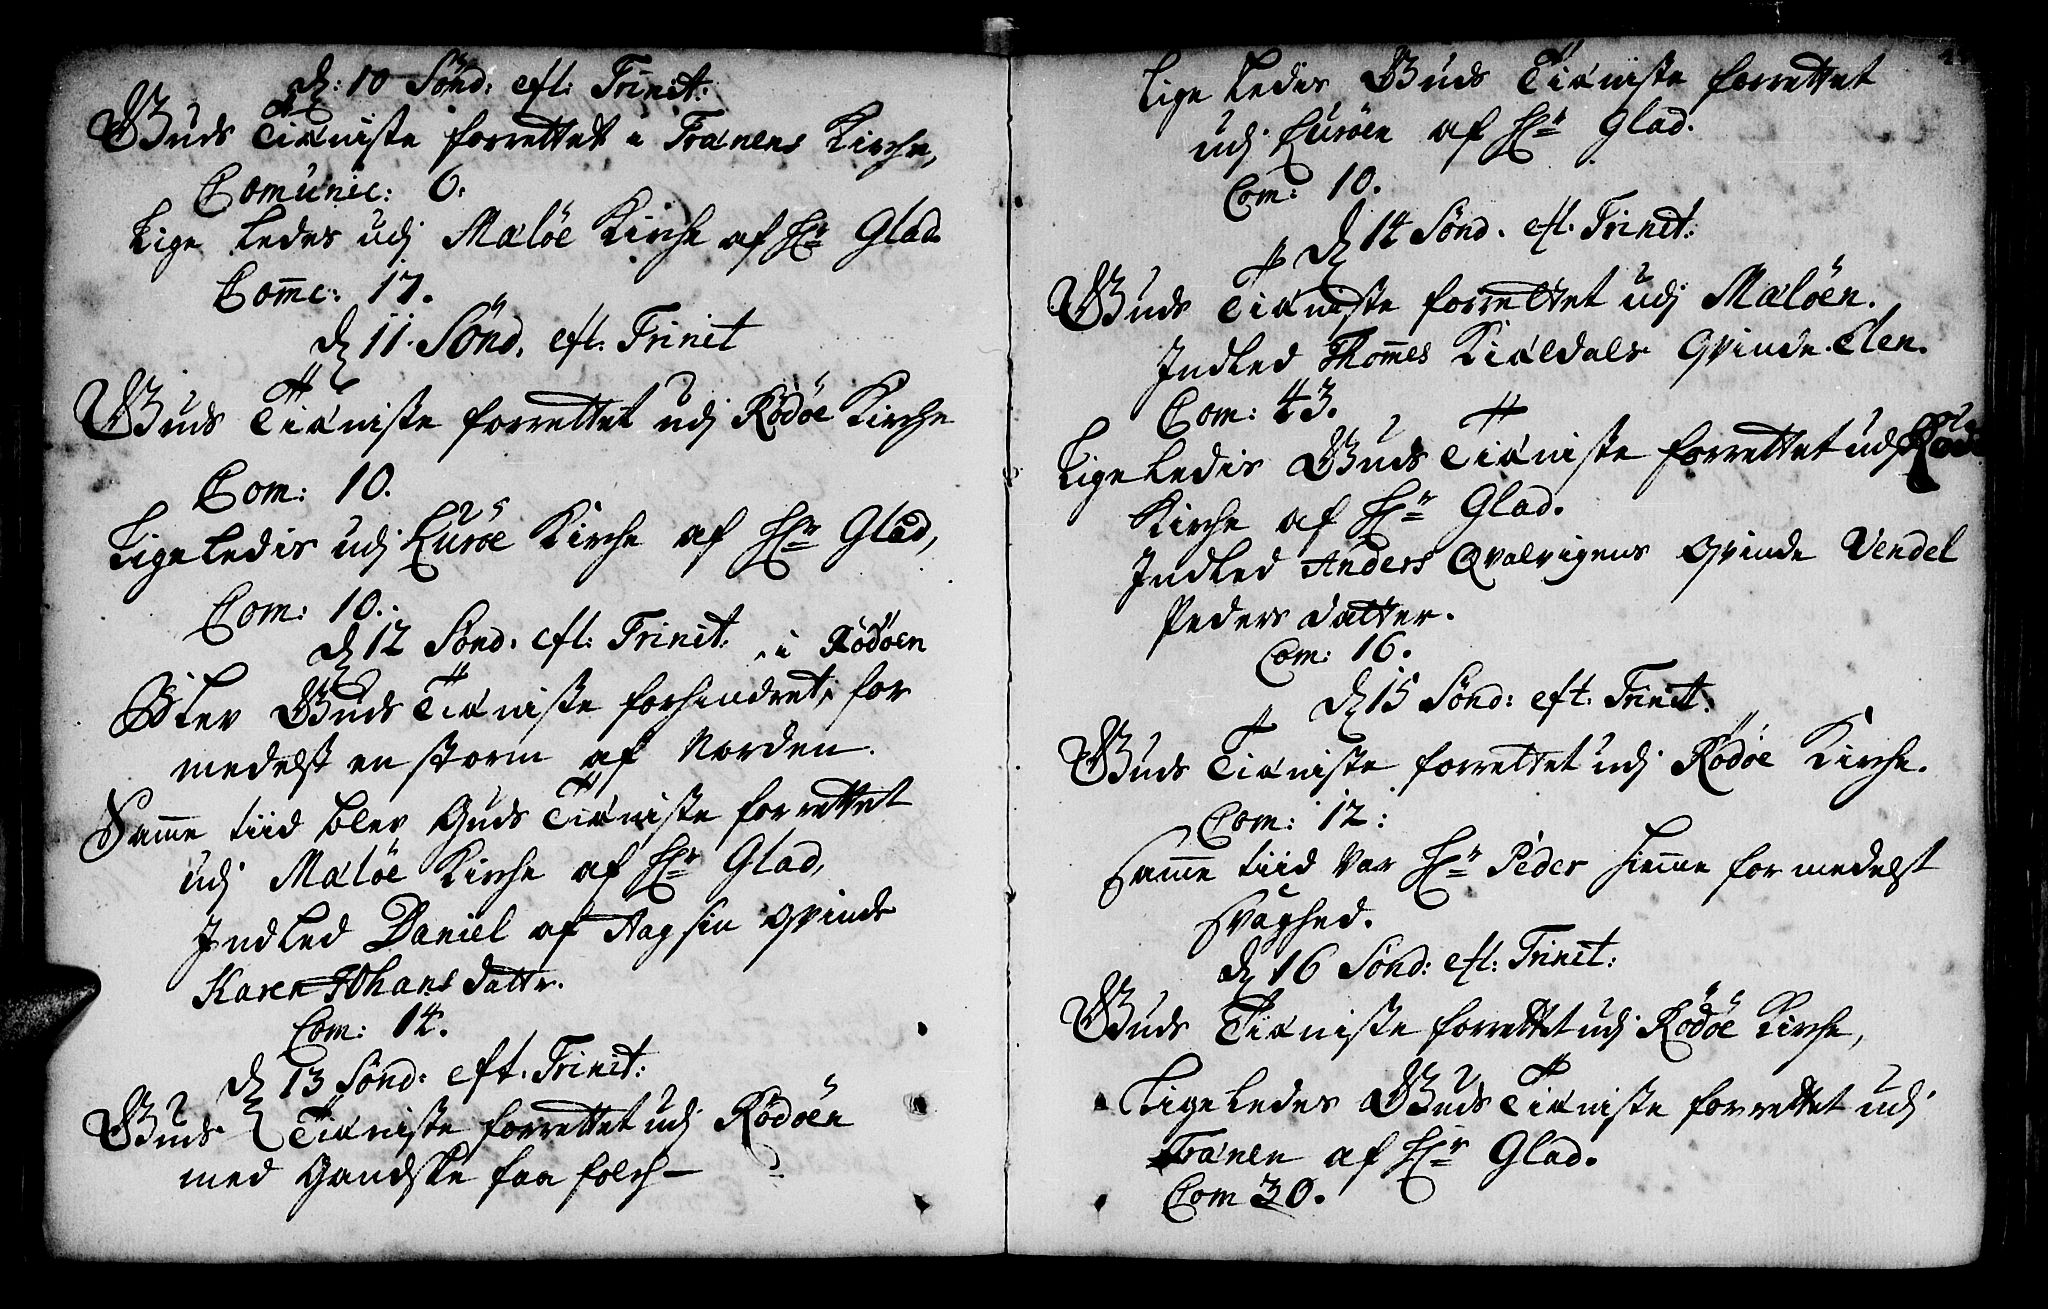 d: 10 Sönd: eft: Trinit:
Guds Tiæniste forrettet i Trænens Kirche,
Comunic: 6.
Lige ledes udj Mæløe Kirche af Hr Glad.
Comc: 17.
d 11. Sönd. eft. Trinit
Guds Tiæniste forrettet udj Rödöe Kirche
Com: 10.
Lige ledis udj Luröe Kirche af Hr Glad,
Com: 10.
d 12 Sönd. eft: Trinit.
Blev Guds Tiæniste forhindret, i Rödöen for
medelst en storm af Norden.
Samme tiid blev Guds Tiæniste forrettet
udj Mæløe Kirche af Hr Glad,
Indled Daniel af Aag sin qvinde
Karen Johans datter.
Com: 14.
d 13 Sönd: eft. Trinit:
Guds Tiæniste forrettet udj Rödöen
med Gandske faa folch-
Lige ledis Guds Tiæniste forrettet
udj Luröen af Hr Glad.
Com: 10.
d 14 Sönd. eft. Trinit:
Guds Tiæniste forrettet udj Mæløen.
Indled Thomes Kiældals Qvinde Elen.
Com: 43.
Lige ledis Guds Tiæniste forrettet udj
Kirche af Hr Glad.
Indled Anders Qvalvigens qvinde Vendel
Peders datter.
Com: 16.
d 15 Sönd: eft. Trinit.
Guds Tiæniste forrettet udj Rödöe Kirche.
Com: 12:
Samme tiid var Hr Peder hiemme for medelst
svaghed.
d 16 Sönd: eft: Trinit:
Guds Tiæniste forrettet udj Rödöe Kirche,
Lige ledes Guds Tiæniste forrettet udj
Trænen af Hr Glad.
Com 30.